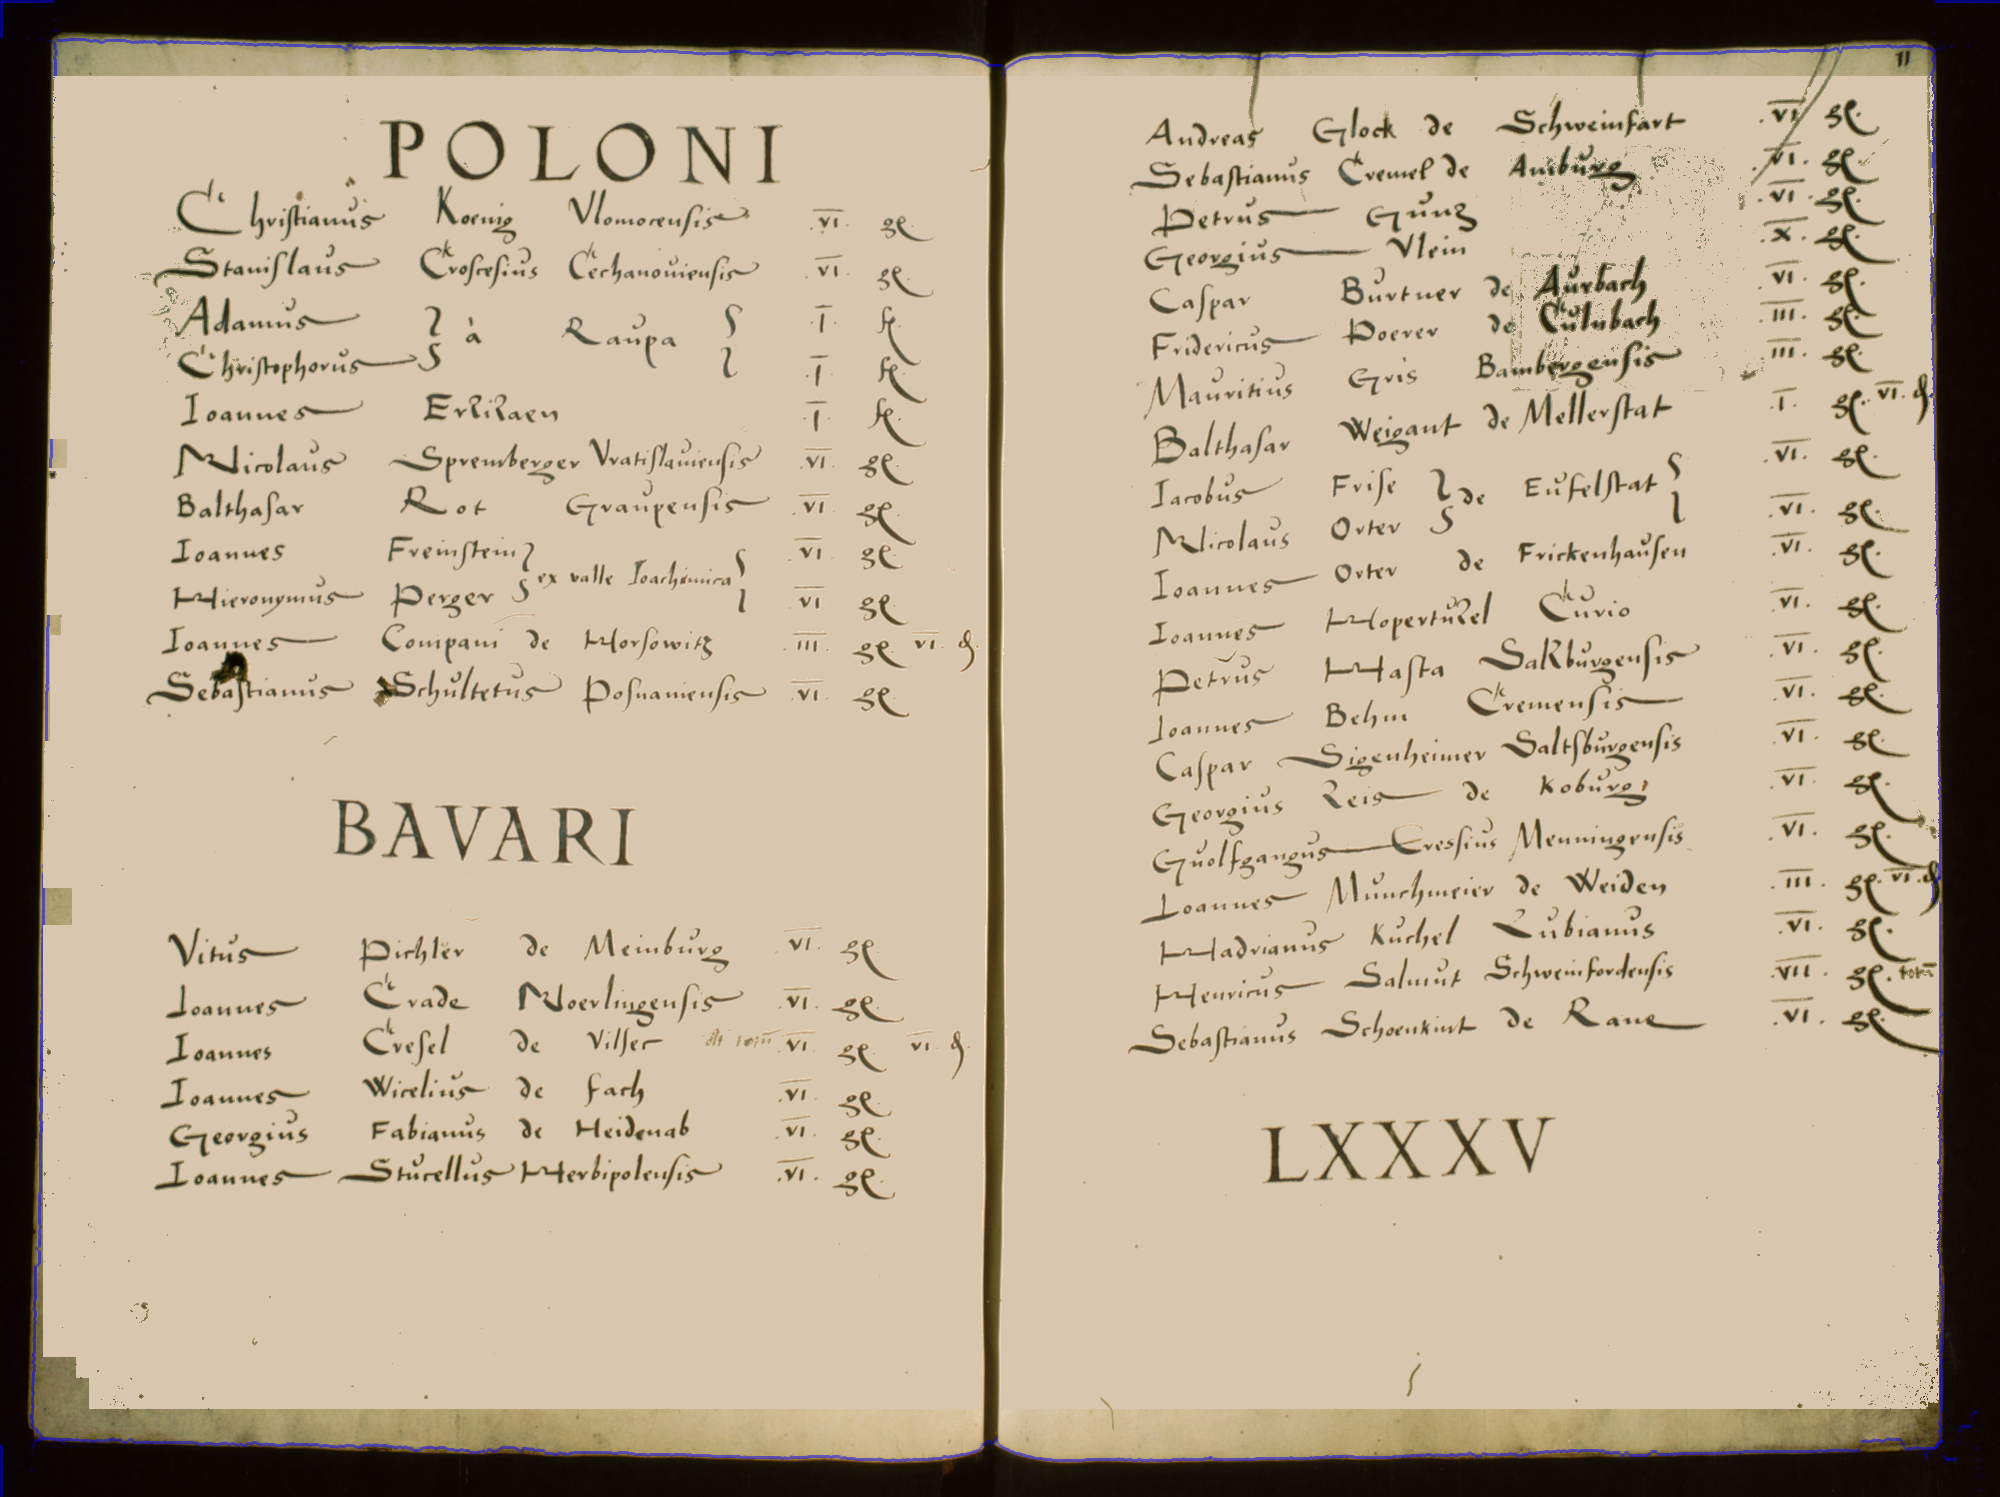 POLONI
Christianus Koenig Vlomocensis .VI. gl.
Stanislaus Croscesius Cechanouiensis .VI. gl.
Adamus à Raupa .I. fl.
Christophorus .I. fl.
Ioannes .I. fl.
Nicolaus Spremberger Vratislauiensis .VI. gl.
Balthasar Rot Graupensis .VI. gl.
Ioannes Freinstein .VI. gl.
ex valle Ioachimica
Hieronymus Perger .VI. gl.
Ioannes Compani de Horsowitz .III. gl. VI. d.
Sebastianus Schultetus Posnaniensis .VI. gl.
BAVARI
Vitus Pichler de Meinburg .VI. gl.
Ioannes Crade Noerlingensis .VI. gl.
Ioannes Cresel de Vilser .VI. gl. VI. d.
Ioannes Wicelius de fach .VI. gl.
Georgius Fabianus de Heidenab .VI. gl.
Ioannes Stucellus Herbipolensis .VI. gl.
11
Andreas Glock de Schweinfart .VI. gl.
Sebastianus Cremel de .VI. gl.
Petrus Gunz .VI. gl.
Georgius Vlein .X. gl.
Caspar Burtner de Aurbach .VI. gl.
Fridericus Poerer de Culnbach .III. gl.
Mauritius Gris Bambergensis .III. gl.
Balthasar Weigant de Mellerstat .I. gl. VI. d.
Iacobus Frise .VI. gl.
de Eufelstat
Nicolaus Orter .VI. gl.
Ioannes Orter de Frickenhausen .VI. gl.
Ioannes Curio .VI. gl.
Petrus Hasta Salzburgensis .VI. gl.
Ioannes Behm Cremensis .VI. gl.
Caspar Sigenheimer Saltsburgensis .VI. gl.
Georgius Reis de Koburg .VI. gl.
Guolfgangus Cressius Menningensis .VI. gl.
Ioannes Munchmeier de Weiden .III. gl. VI. d.
Hadrianus Kuchel Lubianus .VI. gl.
Henricus Salmut Schweinfordensis .VII. gl. totū
Sebastianus Schoenkint de Rane .VI. gl.
LXXXV